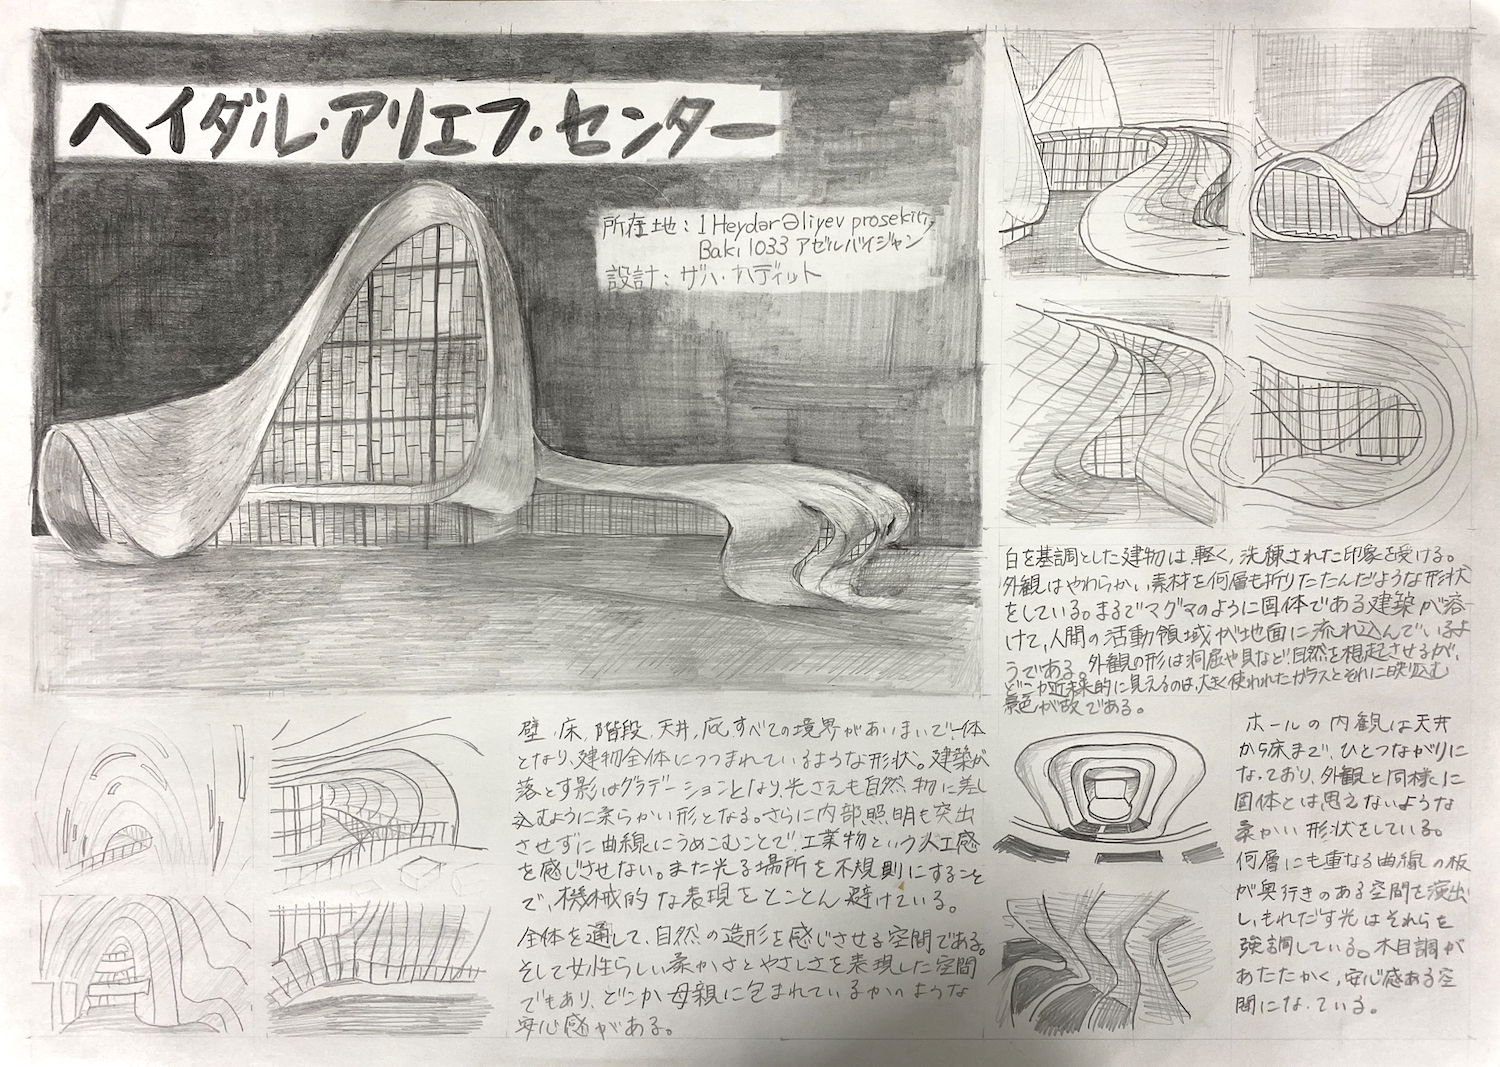 ヘイダル・アリエフ・センター
所在地：1 Heydər Əliyev prosekiti,
Baki 1033 アゼルバイジャン
設計：ザハ・ハディット
白を基調とした建物は、軽く、洗練された印象を受ける。
外観はやわらかい素材を何層も折りたたんだような形状
をしている。まるでマグマのように固体である建築が溶
けて、人間の活動領域が地面に流れ込んでいるよ
うである。外観の形は洞窟や貝など自然を想起させるが、
どこか近未来的に見えるのは、大きく使われたガラスとそれに映り込む
景色が故である。
壁、床、階段、天井、庇、すべての境界があいまいで、一体
となり、建物全体につつまれているような形状。建築が
落とす影はグラデーションとなり、光さえも自然物に差し
込むように柔らかい形となる。さらに内部照明も突出
させずに曲線にうめこむことで、工業物という人工感
を感じさせない。また光る場所を不規則にすること
で、機械的な表現をとことん避けている。
全体を通して、自然の造形を感じさせる空間である。
そして女性らしい柔かさとやさしさを表現した空間
でもあり、どこか母親に包まれているかのような
安心感がある。
ホールの内観は天井
から床まで、ひとつながりに
なっており、外観と同様に
固体とは思えないような
柔かい形状をしている。
何層にも重なる曲線の板
が奥行きのある空間を演出
し、もれだす光はそれらを
強調している。木目調が
あたたかく、安心感ある空
間になっている。